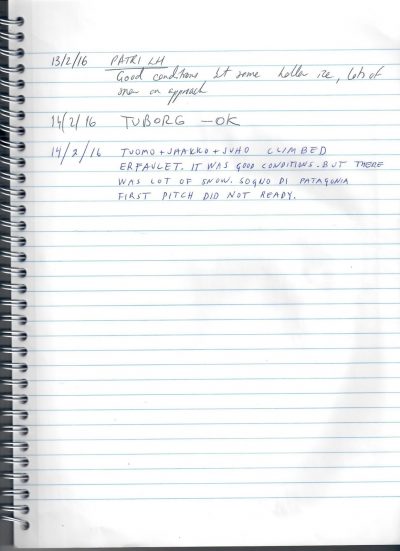 13/2/16 PATRI LH
Good conditions bt some hollow ice, lots of
snow on approach
14/2/16 TUBORG - OK
14/2/16 TUOMO + JAAKKO + JUHO CLIMBED
ERFAULET. IT WAS GOOD CONDITIONS. BUT THERE
WAS LOT OF SNOW. SOGNO DI PATAGONIA
FIRST PITCH DID NOT READY.